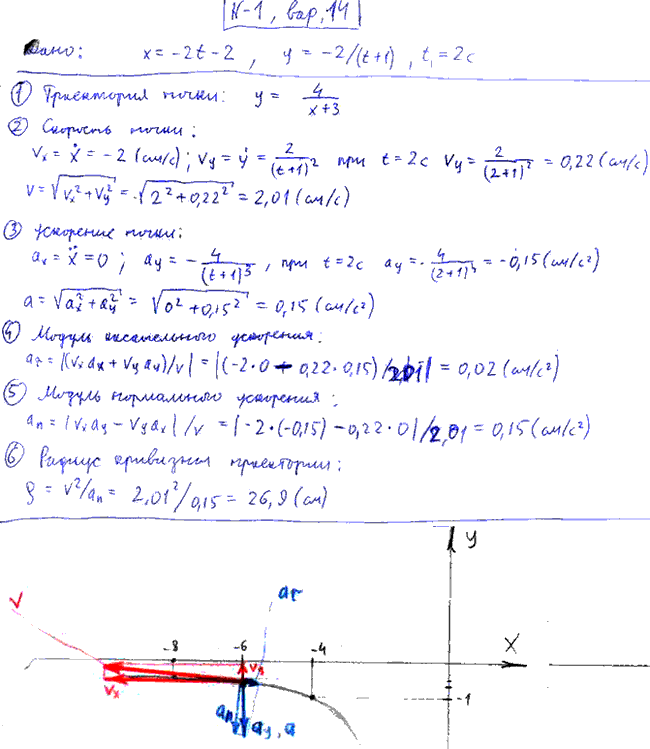 К-1, вар. 14
Дано: x = -2t - 2, y = -2/(t+1), t₁ = 2c
① Траектория точки: y = 4/(x+3)
② Скорость точки:
Vx = ẋ = -2 (см/с); Vy = ẏ = 2/(t+1)² при t = 2c Vy = 2/(2+1)² = 0,22 (см/с)
V = √(Vx² + Vy²) = √(2² + 0,22²) = 2,01 (см/с)
③ Ускорение точки:
ax = ẍ = 0; ay = -4/(t+1)³, при t = 2c ay = -4/(2+1)³ = -0,15 (см/с²)
a = √(ax² + ay²) = √(0² + 0,15²) = 0,15 (см/с²)
④ Модуль касательного ускорения:
aτ = |(Vx ax + Vy ay)/V| = |(-2·0 - 0,22·0,15)/2,01| = 0,02 (см/с²)
⑤ Модуль нормального ускорения:
an = |Vx ay - Vy ax|/V = |-2·(-0,15) - 0,22·0|/2,01 = 0,15 (см/с²)
⑥ Радиус кривизны траектории:
ρ = V²/an = 2,01²/0,15 = 26,9 (см)
y
V
aτ
-8
-6
-4
X
Vx
an
ay, a
-1